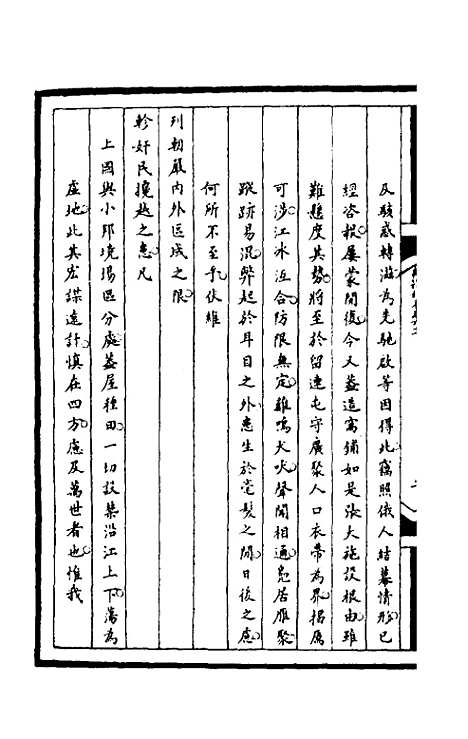 及駭惑轉滋爲先馳啟等因得此竊照俄人結幕情形已
經咨報屢蒙開復今又蓋造窩鋪如是張大施設根由雖
難懸度其勢將至於留連屯守廣聚人口衣帶為界揭厲
可涉江氷沍合防限無定雞鳴犬吠聲聞相通鳧居雁聚
蹤跡易混弊起於耳目之外患生於毫髮之間日後之慮
何所不至乎伏維
列朝嚴內外區域之限
軫奸民攙越之患凡
上國與小邦境埸區分處蓋屋種田一切設禁沿江上下蕩為
虛地此其宏謀遠計慎在四方慮及萬世者也惟我